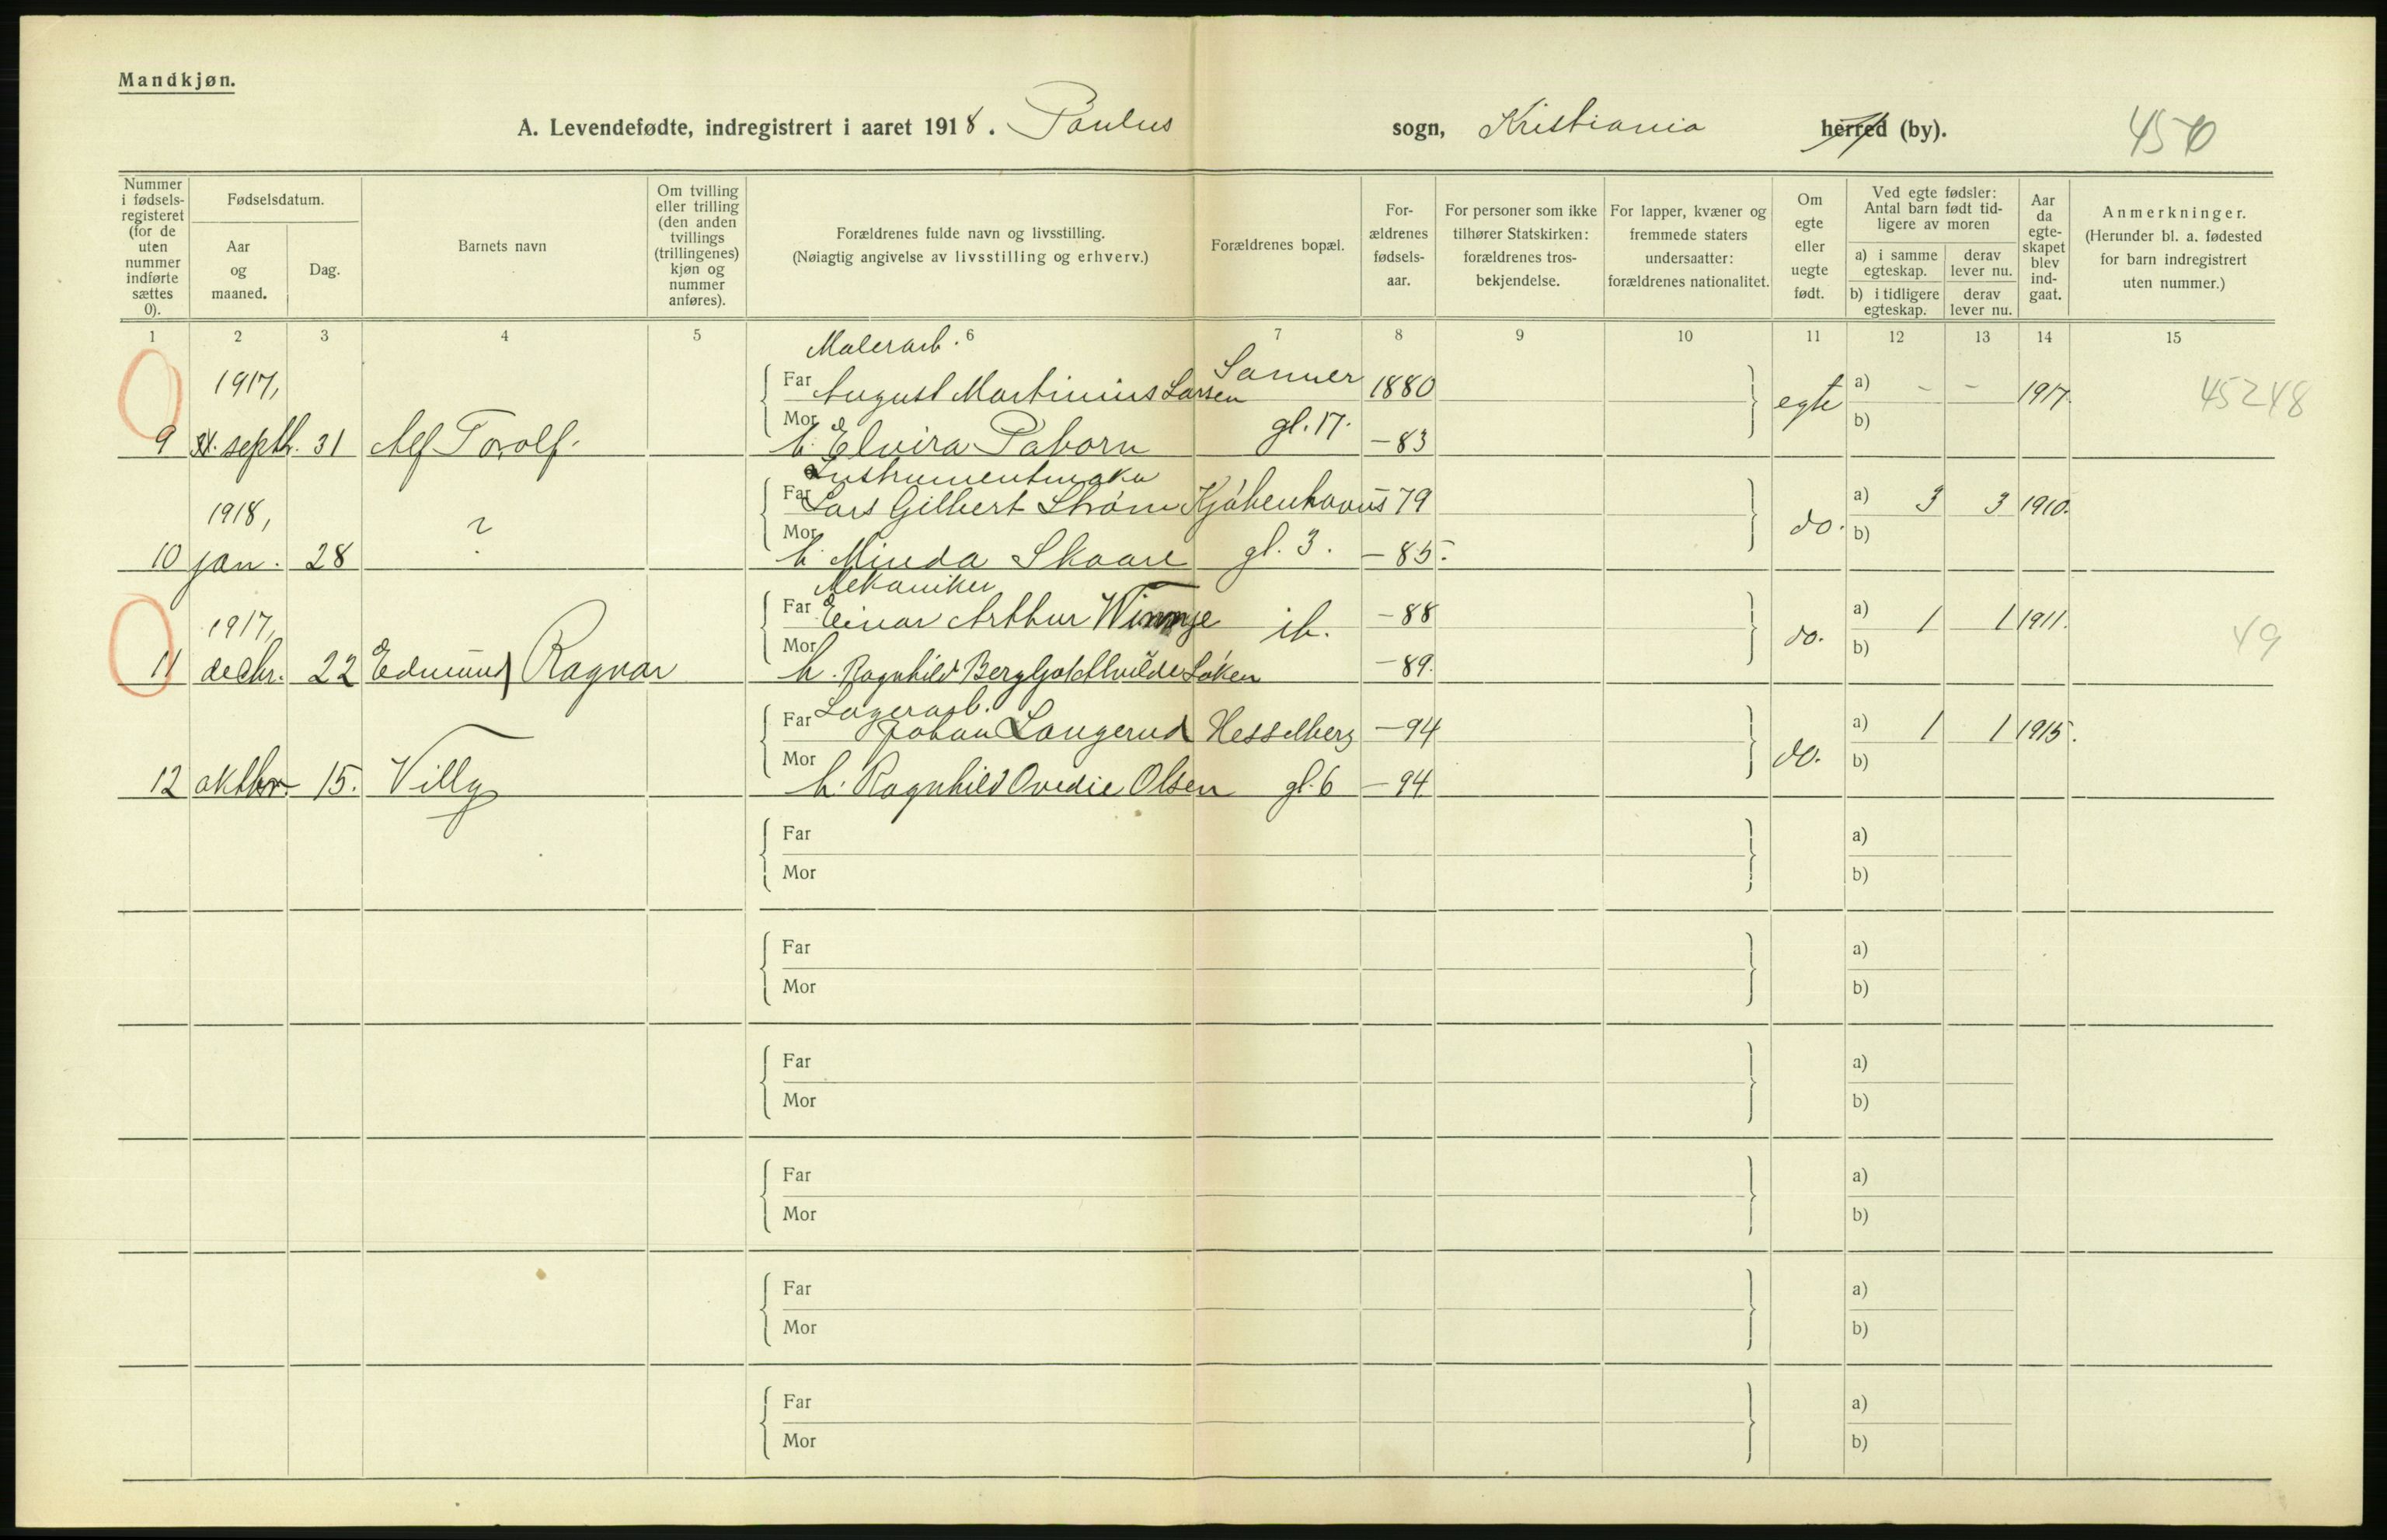 Mandkjøn.
A. Levendefødte, indregistrert i aaret 1918. Paulus sogn, Kristiania herred (by). 450
Nummer i fødsels-registeret (for de uten nummer indførte sættes 0).
Fødselsdatum.
Aar og maaned.
Dag.
Barnets navn
Om tvilling eller trilling (den anden tvillings (trillingenes) kjøn og nummer anføres).
Forældrenes fulde navn og livsstilling.
(Nøiagtig angivelse av livsstilling og erhverv.)
Forældrenes bopæl.
For-ældrenes fødsels-aar.
For personer som ikke tilhører Statskirken: forældrenes tros-bekjendelse.
For lapper, kvæner og fremmede staters undersaatter: forældrenes nationalitet.
Om egte eller uegte født.
Ved egte fødsler: Antal barn født tid-ligere av moren
a) i samme egteskap.
derav lever nu.
b) i tidligere egteskap.
derav lever nu.
Aar da egte-skapet blev ind-gaat.
Anmerkninger.
(Herunder bl. a. fødested for barn indregistrert uten nummer.)
1 2 3 4 5 6 7 8 9 10 11 12 13 14 15
Malerarb.
1917, Far August Martinius Larsen Sanner 1880 egte a) - - 1917. 45248
9 septb. 31 Alf Torolf. Mor h. Elvira Taborn gl. 17. - 83 b)
Instrumentmaker
1918, Far Lars Gilbert Strøm Kjøbenhavns - 79 do. a) 3 3 1910.
10 jan. 28 ? Mor h. Minda Skaare gl. 3. - 85. b)
Mekaniker
1917, Far Einar Arthur ib. - 88 do. a) 1 1 1911. 49
11 decbr. 22 Edmund Ragnar Mor h. Ragnhild Bergljot Løken - 89. b)
Lagerarb.
Far Johan Langerud Hesselberg - 94 do. a) 1 1 1915.
12 oktbr. 15. Villy Mor h. Ragnhild Ovedie Olsen gl. 6 - 94. b)
Far a)
Mor b)
Far a)
Mor b)
Far a)
Mor b)
Far a)
Mor b)
Far a)
Mor b)
Far a)
Mor b)